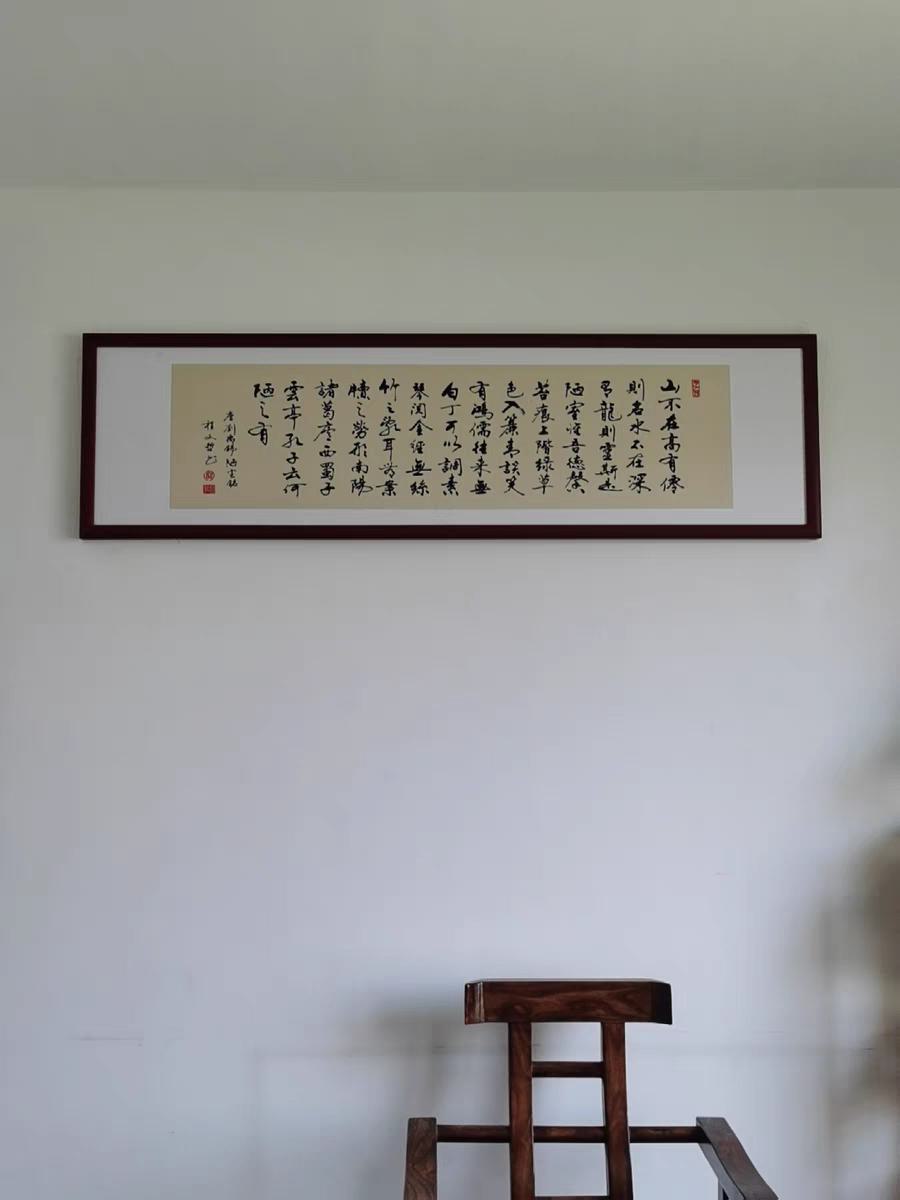 山不在高有僊
則名水不在深
有龍則靈斯是
陋室惟吾德馨
苔痕上階緑草
色入簾青談笑
有鴻儒往来無
白丁可以調素
琴閲金經無絲
竹之亂耳無案
牘之勞形南陽
諸葛廬西蜀子
雲亭孔子云何
陋之有
唐劉禹錫陋室銘
文哲书